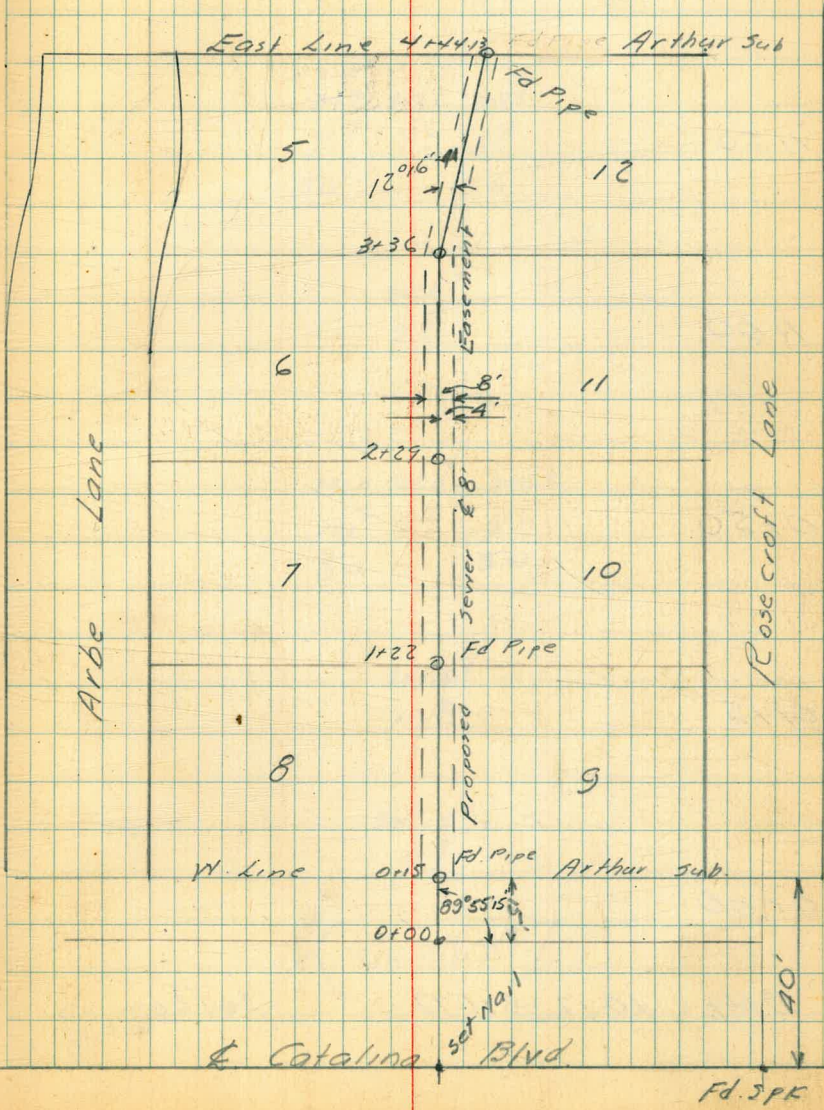 East Line 4+44.13 Fd Pipe Arthur Sub
Fd. Pipe
5
12°16'
12
3+36
Easement
6
8'
11
4'
2+29
Arbe Lane
Rosecroft Lane
7
Proposed Sewer & 8'
10
1+22 Fd Pipe
8
9
W. Line 0+15 Fd. Pipe Arthur Sub.
89°55'15"
0+00
40'
Set Nail
℄ Catalina Blvd.
Fd. Spk